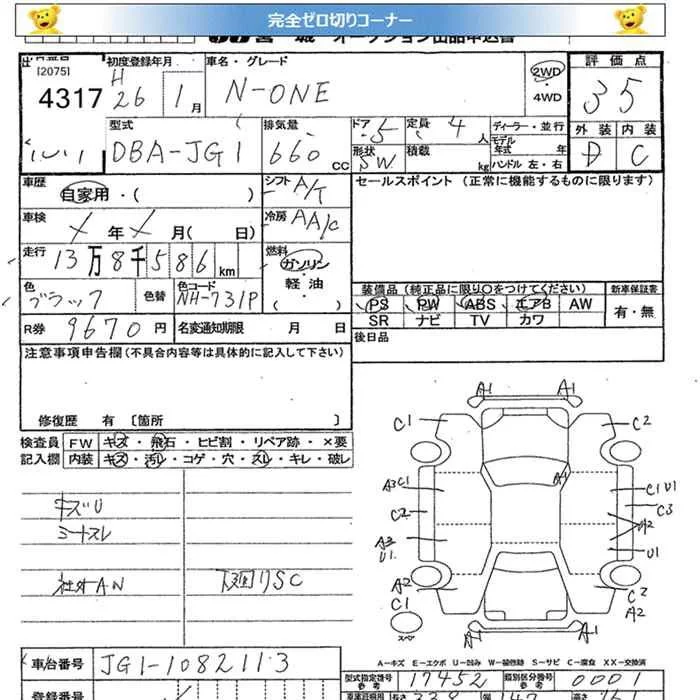 完全ゼロ切りコーナー
[2075]
初度登録年月
車名・グレード
評価点
4317
H
26 1月
N-ONE
2WD
・
4WD
35
型式
排気量
ドア
定員
ディーラー・並行
外装 内装
DBA-JG1
660 CC
5
4 人
モデル年式 年
D C
形状
積載
SW
kg
ハンドル 左・右
車歴
自家用・( )
シフト
A/T
セールスポイント (正常に機能するものに限ります)
車検
年 月( 日)
冷房
AAC
走行
13万8千586km
燃料
ガソリン
軽油
( ・ )
色
ブラック
色替
色コード
NH-731P
装備品 (純正品に限り○をつけてください)
新車保証書
PS PW ABS エアB AW
有・無
SR ナビ TV カワ
R券 9670円
名変通知期限 月 日
後日品
注意事項申告欄 (不具合内容等は具体的に記入して下さい)
修復歴 有 〔箇所 〕
検査員 FW キズ・飛石・ヒビ割・リペア跡・×要
記入欄 内装 キズ・汚れ・コゲ・穴・スレ・キレ・破レ
キズU
シートスレ
社外AN
下回りSC
A1 A1
C1 C2
A1
A3 C1
C1 U1
C2
C3
A2
A3
U1
U1
A2
C2
A2
C1
スペア
A1 A1
A-キズ E-エクボ U-凹み W-補修跡 S-サビ C-腐食 XX-交換済
車台番号 JG1-1082113
型式指定番号 17452
類別区分番号 0001
登録番号